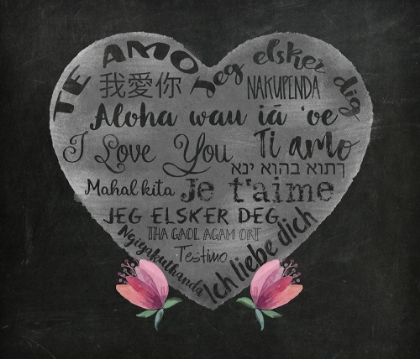 TE AMO
Jeg elsker dig
我愛你
NAKUPENDA
Aloha wau iá 'oe
I Love You
Ti amo
רתוא בהוא ינא
Mahal kita
Je t'aime
JEG ELSKER DEG
THA GAOL AGAM ORT
Testimo
Ngiyakuthanda
Ich liebe dich